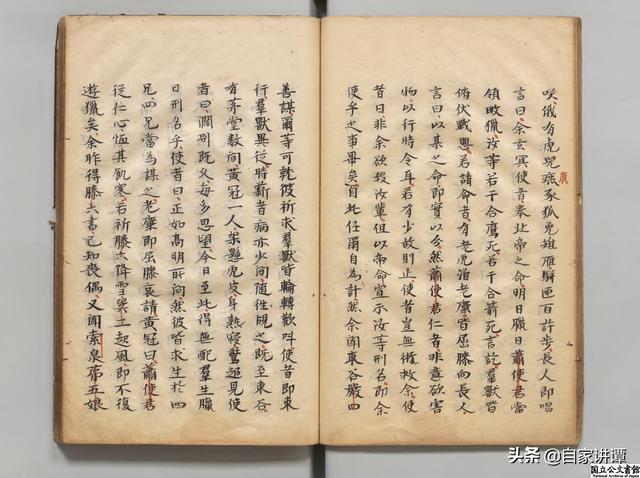 咲俄有虎兕燕豕狐兔雉雁駢匝百許步長人即唱
言曰余玄冥使者奉北帝之命明日臘日蕭使君當
領畋獵汝等若干合鷹死若干合箭死言訖羣獸皆
俯伏戰懼若請命者有老虎洎老麋皆屈膝向長人
言曰以某之命即實以分然蕭使君仁者非意欲害
物以行時令耳若有少故則止使者豈無術救余使
者曰非余欲殺汝輩但以帝命宣示汝等刑名即余
使乎之事畢矣自此任爾自為計然余聞東谷嚴四
善謀爾等可就彼祈求羣獸皆輪轉歡呌使者即東
行羣獸畢從時薪者病亦少間隨往覘之既至東谷
有茅堂數間黃冠一人架懸虎皮身熟寢驚起見使
者曰濶別既久每多思望今日至此得無配羣生臘
日刑名乎使者曰正如高明所問然彼皆求生於四
兄四兄當為謀之老麋即屈膝哀請黃冠曰蕭使君
從仁心恤其飢寒若祈滕六降雪巽二起風即不復
遊獵矣余昨得滕六書已知喪偶又聞索泉苐五娘
头条 @自家讲谭
国立公文書館
National Archives of Japan